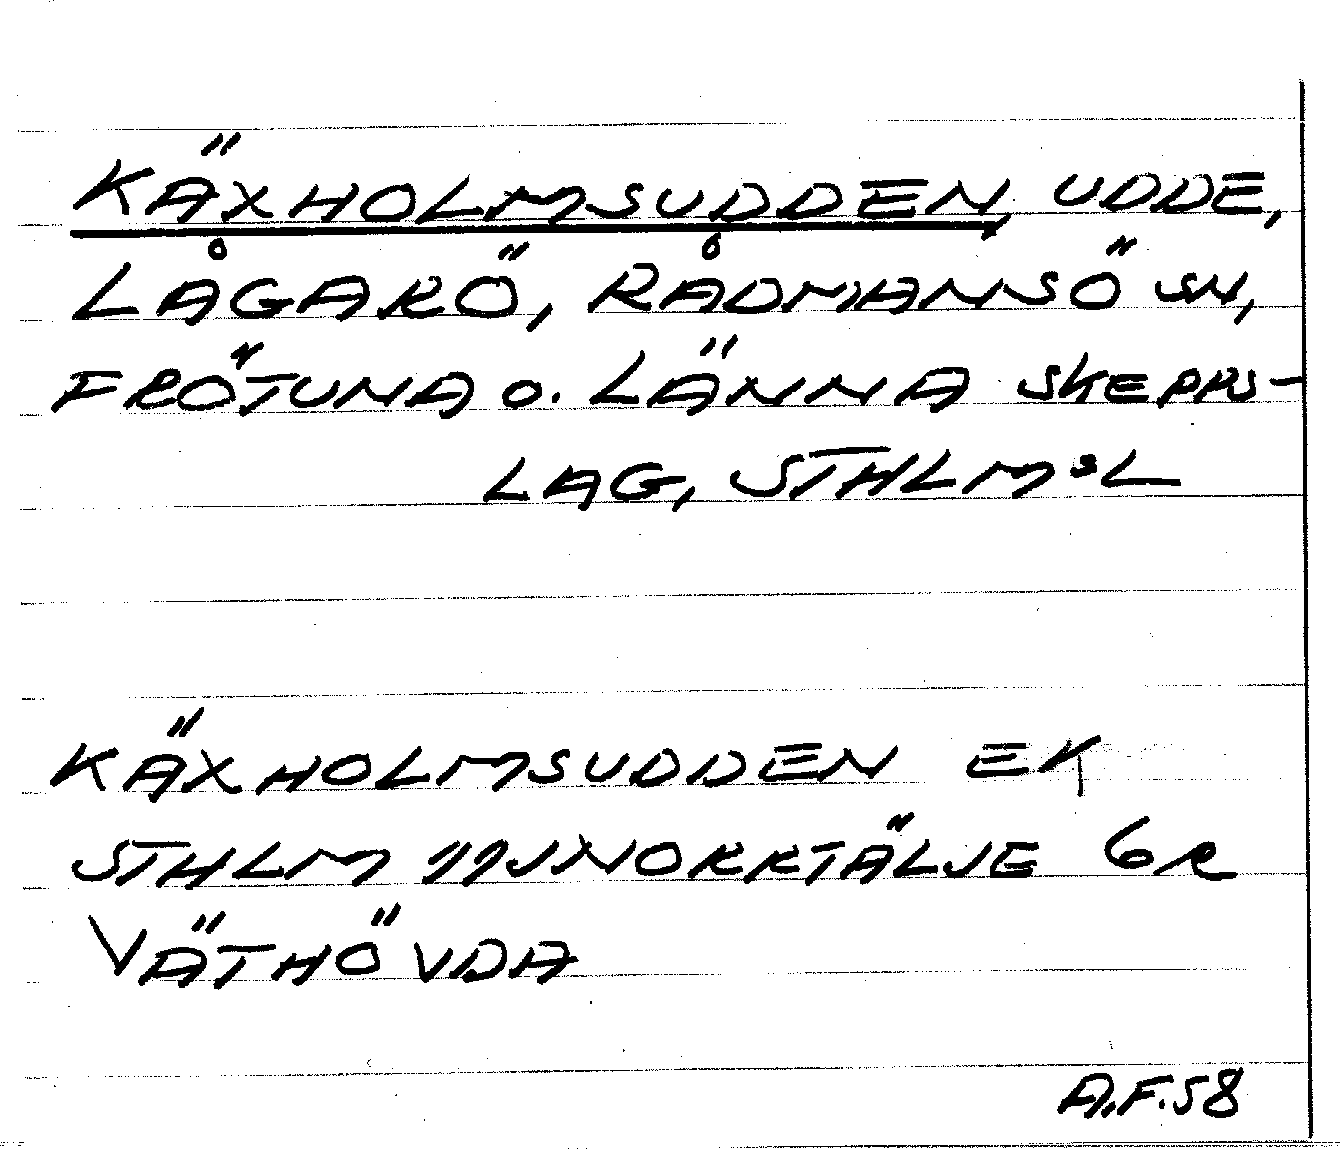 KÄXHOLMSUDDEN, UDDE,
LÅGARÖ, RÅDMANSÖ SN,
FRÖTUNA O. LÄNNA SKEPPS-
LAG, STHLMSL
KÄXHOLMSUDDEN EK
STHLM 11J NORRTÄLJE 6R
VÄTHÖVDA
A.F.58